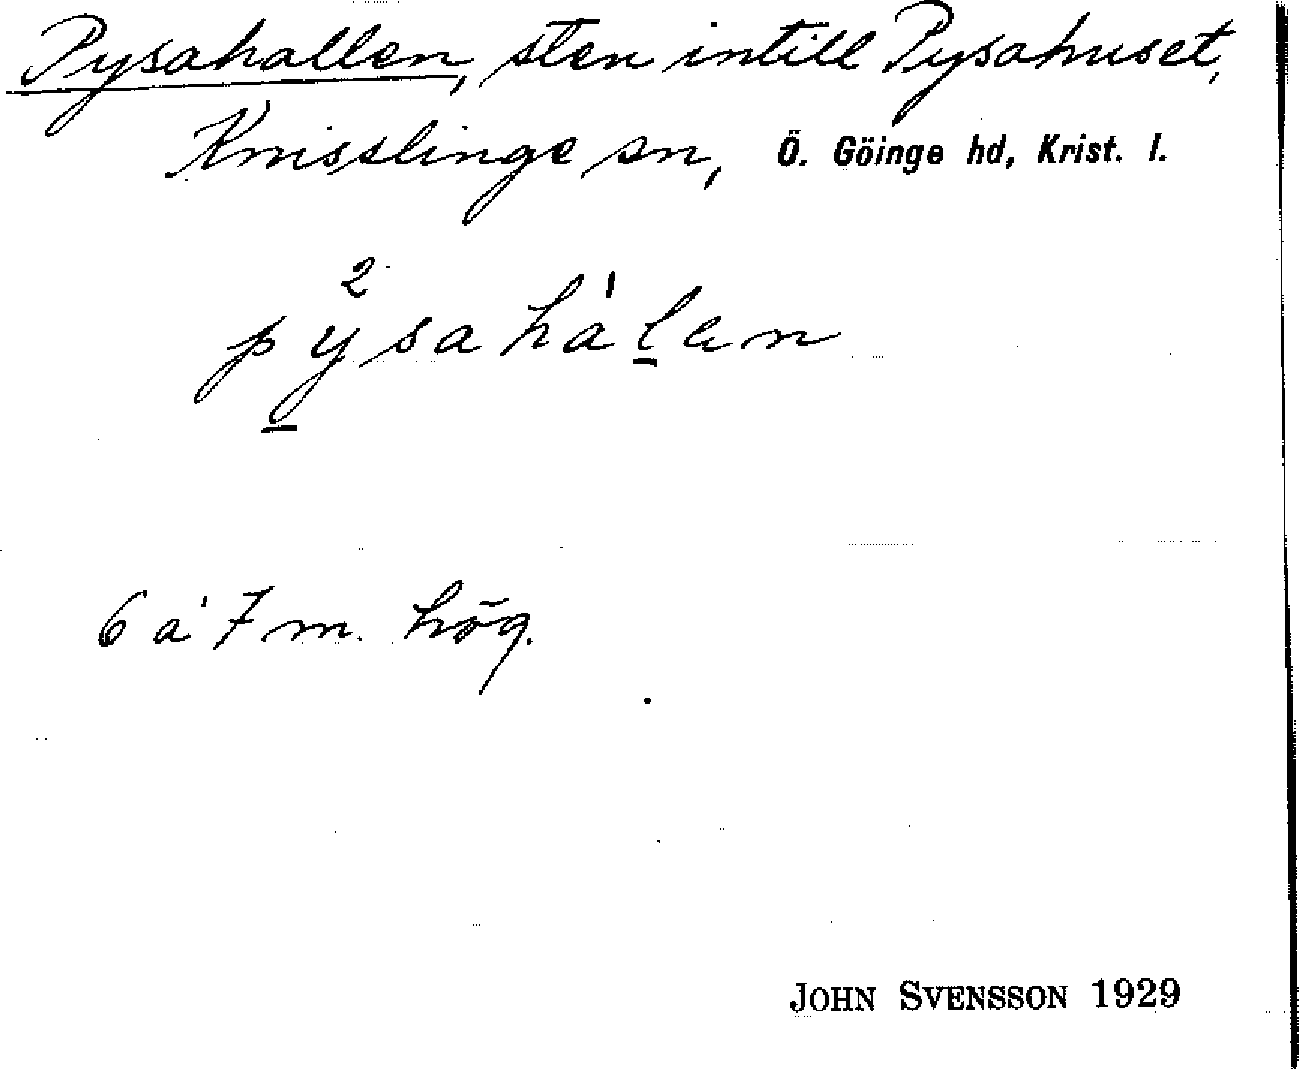 Pysahallen, sten intill Pysahuset,
Knisslinge sn, Ö. Göinge hd, Krist. l.
pysahalen
6 à 7 m. hög.
JOHN SVENSSON 1929